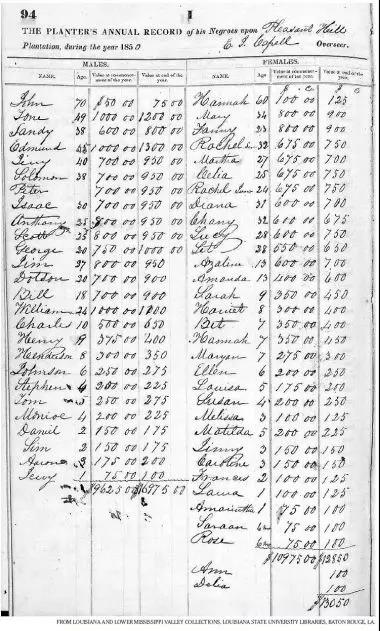 94 I
THE PLANTER'S ANNUAL RECORD of his Negroes upon Pleasant Hill
Plantation, during the year 1850 E. J. Capell Overseer.
MALES. FEMALES.
NAME. Age. Value at commencement of the year. Value at end of the year. NAME. Age. Value at commencement of the year. Value at end of the year.
John 70 $50 00 75 00 Hannah 60 100 00 125
Tone 49 1000 00 1200 00 Mary 34 800 00 900
Sandy 38 600 00 800 00 Fanny 23 800 00 900
Edmund 45 1000 00 1300 00 Rachel 32 675 00 750
40 700 00 950 00 Martha 27 675 00 700
Solomon 38 700 00 950 00 Celia 25 675 00 750
Peter 700 00 950 00 Rachel 24 675 00 750
Isaac 30 700 00 950 00 Diana 31 600 00 700
Anthony 25 800 00 950 00 Chany 32 600 00 675
Scott 25 800 00 950 00 Lucy 28 600 00 750
George 20 750 00 1000 00 28 550 00 650
Jim 27 800 00 950 Azaline 13 600 00 700
Dotson 20 700 00 900 Amanda 13 400 00 600
Bill 18 700 00 900 Sarah 9 350 00 450
William 1000 00 1200 Harriet 8 300 00 400
Charles 10 500 00 650 Bet 7 350 00 400
Henry 375 00 400 Hannah 7 350 00 450
Henderson 8 300 00 350 Maryan 7 275 00 300
Johnson 6 250 00 275 Ellen 6 200 00 250
Stephen 200 00 225 Louisa 5 175 00 200
Tom 5 250 00 275 Susan 4 200 00 250
Monroe 4 200 00 225 Melissa 3 100 00 125
Daniel 2 150 00 175 Matilda 5 200 00 225
Sim 2 150 00 175 Jinny 3 150 00 150
Aaron 175 00 200 Caroline 3 150 00 150
1 75 00 100 Frances 2 100 00 125
Laura 1 100 00 125
1 75 00 100
75 00 100
Rose 75 00 100
$10975 00 $12850
Ann 100
Delia 100
$13050
FROM LOUISIANA AND LOWER MISSISSIPPI VALLEY COLLECTIONS, LOUISIANA STATE UNIVERSITY LIBRARIES, BATON ROUGE, LA.